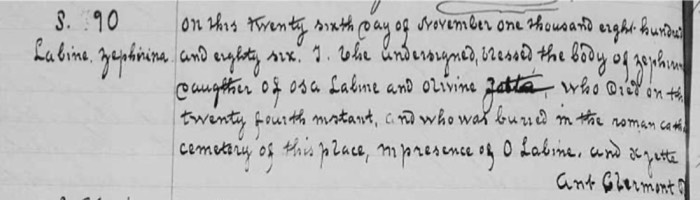 S. 90
Labine. Zephirina
On this twenty sixth day of November one thousand eight hundred
and eighty six. I. the undersigned, blessed the body of Zephirin
Daughter of Osa Labine and Olivine Zetta, who Died on th
twenty fourth instant, and who was buried in the roman cath
cemetery of this place, in presence of O Labine. and x Zette
Ant Clermont